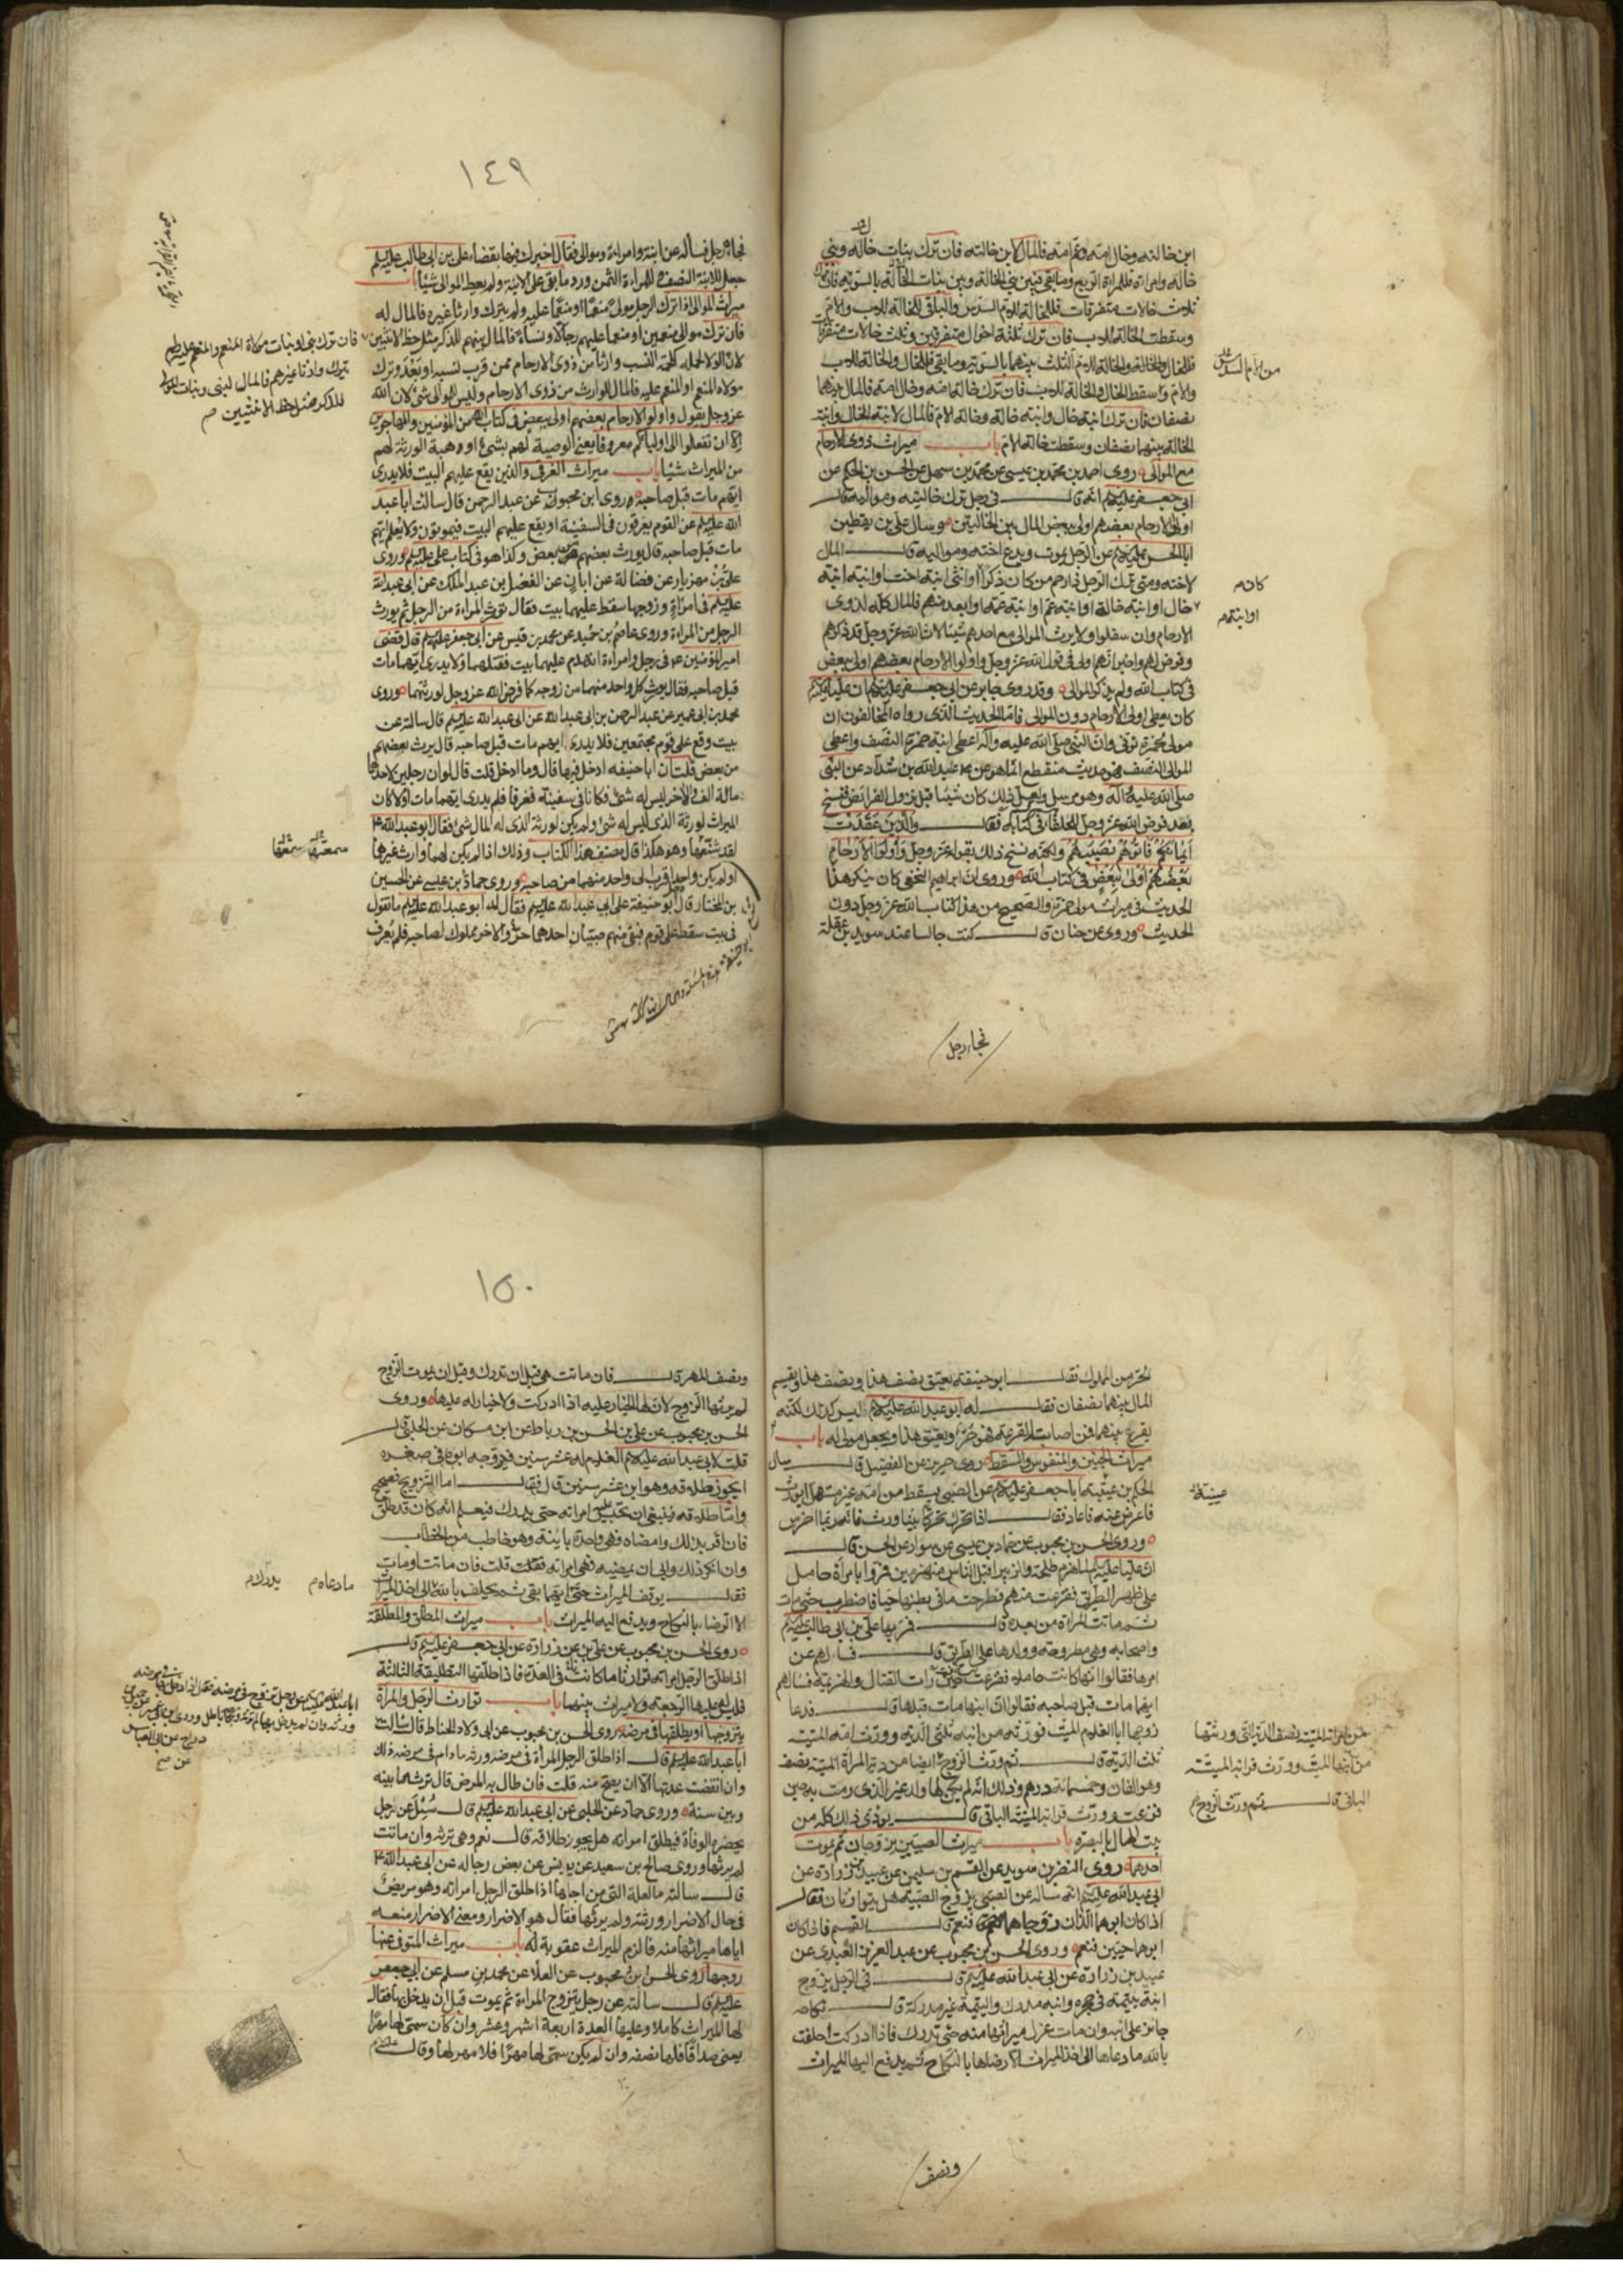 ابن خالته وخال امه وعم امه فالمال لابن خالته فان ترك بنات خاله وبنى
خاله وامراة فللمراة الربع وما بقى فبين بنى الخالة وبين بنات الخالة بالسوية فان ترك
ثلاث خالات متفرقات فللخالة للام السدس والباقى للخالة للاب والام
وسقطت الخالة للاب فان ترك ثلثة اخوال متفرقين وثلث خالات متفرقات
فللخال والخالة للام الثلث بينهما بالسوية وما بقى فللخال والخالة للاب
من الام السدس
والام واسقط الخال والخالة للاب فان ترك خالة امه وخال امه فالمال بينهما
نصفان فان ترك ابنة خال وابنة خالة وخالة الام فالمال لابنة الخال وابنة
الخالة بينهما نصفان وسقطت خالة الام باب ميراث ذوى الارحام
مع الموالى روى احمد بن محمد بن عيسى عن محمد بن سهل عن الحسن بن الحكم عن
ابى جعفر عليه السلام انه قال فى رجل ترك خالتيه ومواليه قال
اولوا الارحام بعضهم اولى ببعض المال بين الخالتين وسال على بن يقطين
ابا الحسن عليه السلام عن الرجل يموت ويدع اخته ومواليه قال المال
لاخته ومتى ترك الرجل ذا رحم من كان ذكرا او انثى ابنة اخت او ابنة ابنة
كان م
خال او ابنة خالة او ابنة عم او ابنة عمة او ابعد منهم فالمال كله لذوى
او ابنة م
الارحام وان سفلوا ولا يرث الموالى مع احدهم شيئا لان الله عز وجل قد ذكرهم
وفرض لهم واخبر انهم اولى فى قول الله عز وجل واولوا الارحام بعضهم اولى ببعض
فى كتاب الله ولم يذكر الموالى وقد روى جابر عن ابى جعفر عليه السلام ان عليا
كان يعطى اولى الارحام دون الموالى فاما الحديث الذى رواه المخالفون ان
مولى لحمزة توفى وان النبى صلى الله عليه وآله اعطى ابنة حمزة النصف واعطى
الموالى النصف فهو حديث منقطع انما هو عن عبد الله بن شداد عن النبى
صلى الله عليه وآله وهو مرسل ولعل ذلك كان شيئا قبل نزول الفرائض فنسخ
بعد فرض الله عز وجل للحلفاء فى كتابه فقال والذين عقدت
ايمانكم فاتوهم نصيبهم ولكنه نسخ ذلك بقوله عز وجل واولوا الارحام
بعضهم اولى ببعض فى كتاب الله وروى ان ابراهيم النخعى كان ينكر هذا
الحديث فى ميراث مولى حمزة والصحيح من هذا كتاب الله عز وجل دون
الحديث وروى عن حنان قال كنت جالسا عند سويد بن غفلة
فجاء رجل
١٤٩
فجاءه رجل فساله عن ابنة وامراءة وموالى فقال اخبرك فيها بقضاء على بن ابى طالب عليه السلم
جعل للابنة النصف وللمراءة الثمن ورد ما بقى على الابنة ولم يعط الموالى شيئا باب
ميراث الموالى اذا ترك الرجل مولى منعما او منعما عليه ولم يترك وارثا غيره فالمال له
فان ترك موالى منعمين او منعما عليهم رجالا ونساء فالمال بينهم للذكر مثل حظ الانثيين
فان ترك بنى او بنات مولاه المنعم او المنعم عليه ولم
يترك وارثا غيرهم فالمال لبنى وبنات المولى
للذكر مثل حظ الانثيين ص
لان الولاء لحمة كلحمة النسب وارثا من ذوى الارحام ممن قرب نسبه او بعد وترك
مولاه المنعم او المنعم عليه فالمال للوارث من ذوى الارحام وليس للموالى شئ لان الله
عز وجل يقول واولوا الارحام بعضهم اولى ببعض فى كتاب الله من المؤمنين والمهاجرين
الا ان تفعلوا الى اوليائكم معروفا يعنى الوصية لهم بشئ او وهبة الورثة لهم
من الميراث شيئا باب ميراث الغرقى والذين يقع عليهم البيت فلا يدرى
ايهم مات قبل صاحبه روى ابن محبوب عن عبد الرحمن قال سالت ابا عبد
الله عليه السلم عن القوم يغرقون فى السفينة او يقع عليهم البيت فيموتون ولا يعلم ايهم
مات قبل صاحبه قال يورث بعضهم من بعض وكذا هو فى كتاب على عليه السلم وروى
على بن مهزيار عن فضالة عن ابان عن الفضل بن عبد الملك عن ابى عبد الله
عليه السلم فى امراة وزوجها سقط عليهما بيت فقال تورث المراءة من الرجل ثم يورث
الرجل من المراءة وروى عاصم بن حميد عن محمد بن قيس عن ابى جعفر عليه السلم قال قضى
امير المؤمنين ع فى رجل وامراءة انهدم عليهما بيت فقتلهما ولا يدرى ايهما مات
قبل صاحبه فقال يورث كل واحد منهما من زوجه كما فرض الله عز وجل لورثتهما وروى
محمد بن ابى عمير عن عبد الرحمن بن ابى عبد الله عن ابى عبد الله عليه السلم قال سالته عن
بيت وقع على قوم مجتمعين فلا يدرى ايهم مات قبل صاحبه قال يرث بعضهم
من بعض قلت ان ابا حنيفه ادخل فيها قال وما ادخل قلت قال لو ان رجلين لاحدهما
مائة الف والاخر ليس له شئ وكانا فى سفينة فغرقا فلم يدرى ايهما مات اولا كان
الميراث لورثة الذى ليس له شئ ولم يكن لورثة الذى له المال شئ فقال ابو عبد الله ع
لقد سمعها وهو هكذا قال مصنف هذا الكتاب وذلك اذا لم يكن لهما وارث غيرهما
او لم يكن واحد اقرب الى واحد منهما من صاحبه وروى حماد بن عيسى عن الحسين
بن المختار قال ابو حنيفة على ابى عبد الله عليه السلم فقال له ابو عبد الله عليه السلم ما تقول
فى بيت سقط على قوم فبقى منهم صبيان احدهما حر والاخر مملوك لصاحبه فلم يعرف
الحر من المملوك فقال ابو حنيفة يعتق نصف هذا ونصف هذا ويقسم
المال بينهما نصفان فقال له ابو عبد الله عليه السلام ليس كذلك لكنه
يقرع بينهما فمن اصابته القرعة فهو حر ويعتق هذا ويجعل مولى له باب
ميراث الجنين والمنفوس والسقط روى حريز عن الفضيل قال سال
الحكم بن عتيبة ابا جعفر عليه السلام عن الصبى يسقط من امه غير مستهل ايورث
عتيبة
فاعرض عنه فاعاد فقال اذا تحرك تحركا بينا ورث فانه ربما اخرس
وروى الحسن بن محبوب عن حماد بن عيسى عن سوار عن الحسن قال
ان عليا عليه السلم لما هزم طلحة والزبير اقبل الناس منهزمين فمروا بامراة حامل
على ظهر الطريق ففزعت منهم فطرحت ما فى بطنها حيا فاضطرب حتى مات
ثم ماتت المراة من بعده قال فمر بها على بن ابى طالب عليه السلم
واصحابه وهى مطروحة وولدها على الطريق قال فسالهم عن
امرها فقالوا انها كانت حاملة ففزعت حين رات القتال والهزيمة فسالهم
ايهما مات قبل صاحبه فقالوا ان ابنها مات قبلها قال فدعا
زوجها ابا الغلام الميت فورثه من ابنه ثلثى الدية وورث امه الميتة
ثلث الدية قال ثم ورث الزوج ايضا من دية المراة الميتة نصف
من امراته الميتة نصف الدية التى ورثتها
من ابنها الميت وورث قرابة الميتة
الباقى قال ثم ورث الزوج
وهو الفان وخمسمائة درهم وذلك انه لم يكن لها ولد غير الذى رمت به حين
فزعت وورث قرابة الميتة الباقى قال يودى ذلك كله من
بيت المال بالبصرة باب ميراث الصبيين يزوجان ثم يموت
احدهما روى النضر بن سويد عن القسم بن سليمن عن عبيد بن زرارة عن
ابى عبد الله عليه السلم انه ساله عن الصبى يزوج الصبية هل يتوارثان فقال
اذا كان ابواهما اللذان زوجاهما فنعم قال القسم فاذا كان
ابواهما حيين فنعم وروى الحسن بن محبوب عن عبد العزيز العبدى عن
عبيد بن زرارة عن ابى عبد الله عليه السلم قال فى الرجل يزوج
ابنه يتيمة فى حجره وابنه مدرك واليتيمة غير مدركة قال نكاحه
جائز على ابنه وان مات عزل ميراثها منه حتى تدرك فاذا ادركت احلفت
بالله ما دعاها الى اخذ الميراث الا رضاها بالنكاح ثم يدفع اليها الميراث
ونصف
١٥٠
ونصف المهر قال فان ماتت هى قبل ان تدرك وقبل ان يموت الزوج
لم يرثها الزوج لان لها الخيار عليه اذا ادركت ولا خيار له عليها وروى
الحسن بن محبوب عن على بن الحسن بن رباط عن ابن مسكان عن الحلبى قال
قلت لابى عبد الله عليه السلام الغلام له عشر سنين فيزوجه ابوه فى صغره
ايجوز طلاقه وهو ابن عشر سنين قال فقال اما التزويج فصحيح
واما طلاقه فينبغى ان تحبس عليه امراته حتى يدرك فيعلم انه كان قد طلق
فان اقر بذلك وامضاه فهى واحدة باينة وهو خاطب من الخطاب
وان انكر ذلك وابى ان يمضيه فهى امراته فقلت قلت فان ماتت او مات
فقال يوقف الميراث حتى ايهما بقى ثم يحلف بالله الى اخذ الميراث
ما دعاه م يدرك م
الا الرضاء بالنكاح ويدفع اليه الميراث باب ميراث المطلق والمطلقة
روى الحسن بن محبوب عن على بن عن زرارة عن ابى جعفر عليه السلم قال
اذا طلق الرجل امراته توارثا ما كانت فى العدة فاذا طلقها التطليقة الثالثة
فليس له عليها الرجعة ولا ميراث بينهما باب توارث الرجل والمراة
يتزوجها او يطلقها فى مرضه روى الحسن بن محبوب عن ابى ولاد الحناط قال سالت
ابا عبد الله عليه السلم قال اذا طلق الرجل المراة فى مرضه ورثته مادام فى مرضه ذلك
وان انقضت عدتها الا ان يصح منه قلت فان طال به المرض قال ترثه ما بينه
وبين سنة وروى حماد عن الحلبى عن ابى عبد الله عليه السلم قال سئل عن رجل
يحضره الوفاة فيطلق امراته هل يجوز طلاقه قال نعم وهى ترثه وان ماتت
لم يرثها وروى صالح بن سعيد عن يونس عن بعض رجاله عن ابى عبد الله ع
قال سالته ما العلة التى من اجلها اذا طلق الرجل امراته وهو مريض
فى حال الاضرار ورثته ولم يرثها فقال هو الاضرار ومعنى الاضرار منعه
اياها ميراثها منه فالزم الميراث عقوبة له باب ميراث المتوفى عنها
زوجها روى الحسن بن محبوب عن العلا عن محمد بن مسلم عن ابى جعفر
عليه السلم قال سالته عن رجل يتزوج المراءة ثم يموت قبل ان يدخل بها فقال
لها الميراث كاملا وعليها العدة اربعة اشهر وعشر وان كان سمى لها مهرا
يعنى صداقا فلها نصفه وان لم يكن سمى لها مهرا فلا مهر لها وقال